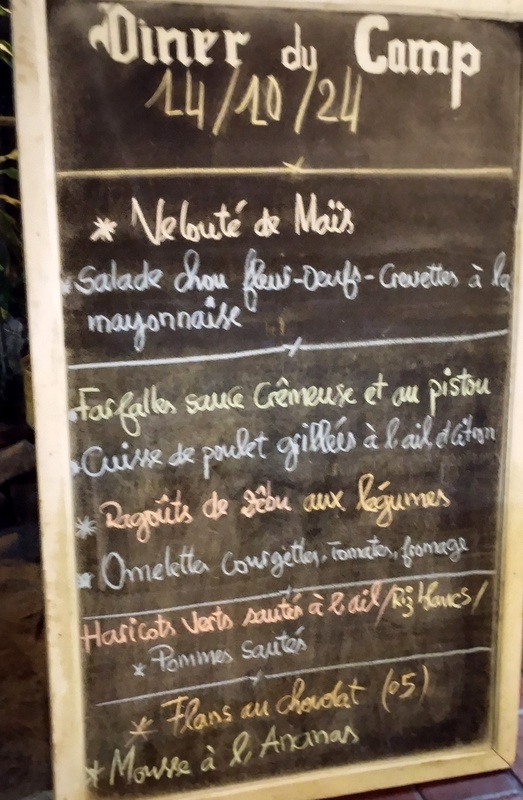 Diner du Camp
14/10/24
* Velouté de Maïs
* Salade chou fleur-Oeufs-Crevettes à la
mayonnaise
* Farfalles sauce Crêmeuse et au pistou
* Cuisse de poulet grillées à l'ail d'citron
* Ragoûts de Zêbu aux légumes
* Omelettes Courgettes, Tomates, fromage
Haricots Verts sautés à l'ail/Riz blancs/
* Pommes Sautés
* Flans au chocolat (05)
* Mousse à l'Ananas